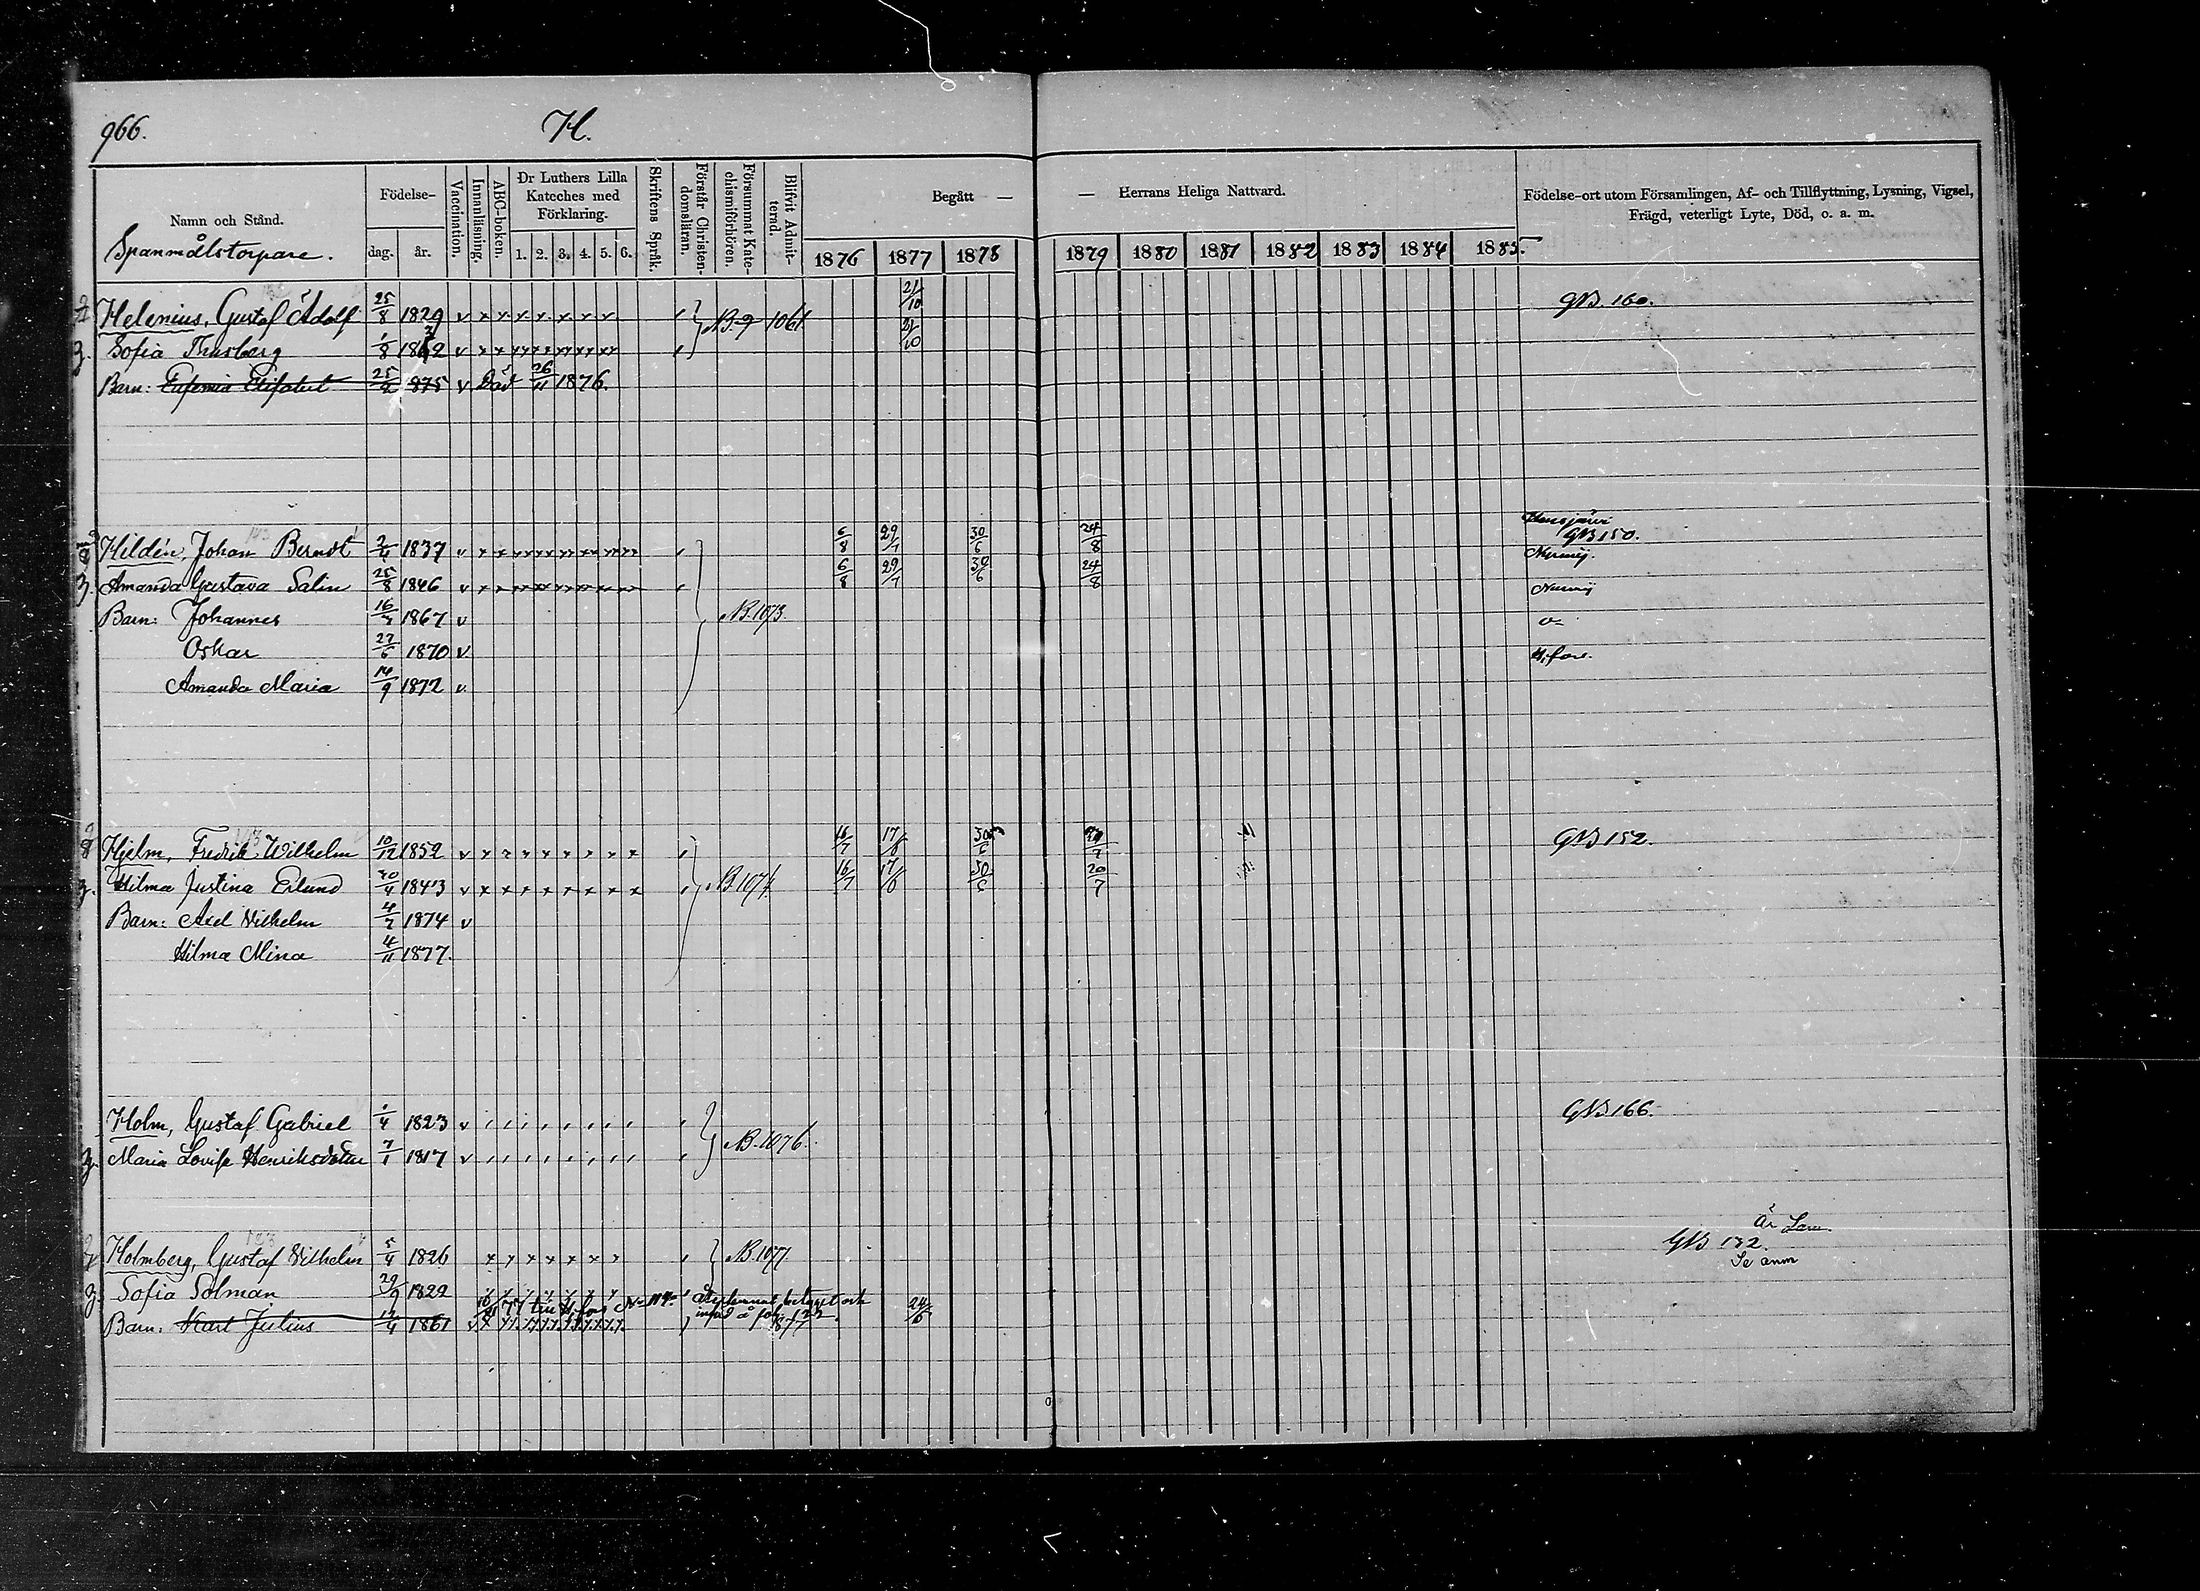 966. H.
Namn och Stånd. Födelse- dag. år. Vaccination. Innanläsning. ABC-boken. Dr Luthers Lilla Kateches med Förklaring. 1. 2. 3. 4. 5. 6. Skriftens Språk. Förstår Christendomsläran. Försummat Katechismiförhören. Blifvit Admitterad. Begått — — Herrans Heliga Nattvard. Födelse-ort utom Församlingen, Af- och Tillflyttning, Lysning, Vigsel, Frägd, veterligt Lyte, Död, o. a. m.
Spanmålstorpare. 1876 1877 1878 1879 1880 1881 1882 1883 1884 1885.
Helenius, Gustaf Adolf 25/8 1829 NB 1061. 21/10 GNB. 160.
Sofia 1/8 21/10
Barn: 25/2 875 v Död 26/11 1876.
Hildén, Johan Berndt 2/4 1837 v 6/8 29/7 30/6 24/8 GNB 150.
Amanda Gustava Salin 25/8 1846 v 6/8 29/7 30/6 24/8
Barn: Johannes 16/7 1867 v NB. 1073.
Oskar 27/6 1870 v
Amanda Maria 14/9 1872 v H.fors.
Hjelm, Fredrik Wilhelm 10/12 1852 v 16/7 17/6 30/6 GNB 152.
Hilma Justina Erlund 1843 v NB 1074. 16/7 17/6 30/6 20/7
Barn: Axel Vilhelm 4/7 1874 v
Hilma Mina 4/11 1877.
Holm, Gustaf Gabriel 1/4 1823 v GNB 166.
Maria Lovisa Henriksdotter 7/1 1817 v NB. 1076.
Holmberg, Gustaf Vilhelm 5/4 1826 NB. 1077 GNB 132. Se anm
Sofia Solman 29/9 1822
77 till H.fors Återkommit betyget och
Barn: Karl Julius 12/4 1861 införd å fol. 24/6